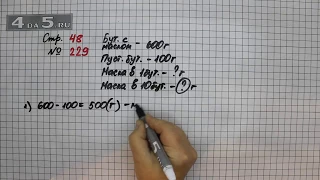 4 DA 5 .RU
Стр. 48.
№ 229
Бут. с
маслом – 600г
Пуст. бут. – 100г
Масла в 1бут. – ? г
Масла в 10бут. – ? г
1) 600 – 100 = 500(г) – м